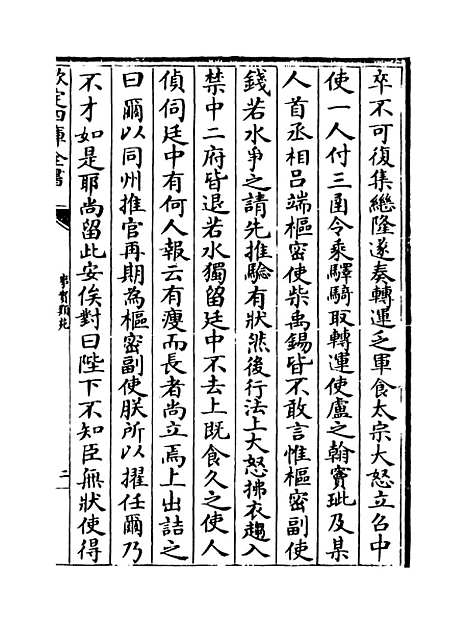 卒不可復集繼隆遂奏轉運乏軍食太宗大怒立召中
使一人付三函令乘驛騎取轉運使盧之翰竇玭及某
人首丞相吕端樞密使柴禹錫皆不敢言惟樞密副使
錢若水爭之請先推驗有狀然後行法上大怒拂衣趨入
禁中二府皆退若水獨留廷中不去上既食久之使人
偵伺廷中有何人報云有瘦而長者尚立焉上出詰之
曰爾以同州推官再期為樞密副使朕所以擢任爾乃
不才如是耶尚留此安俟對曰陛下不知臣無狀使得
欽定四庫全書
事實類苑
二